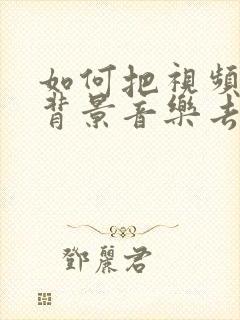 如何把視頻
背景音樂去
鄧麗君